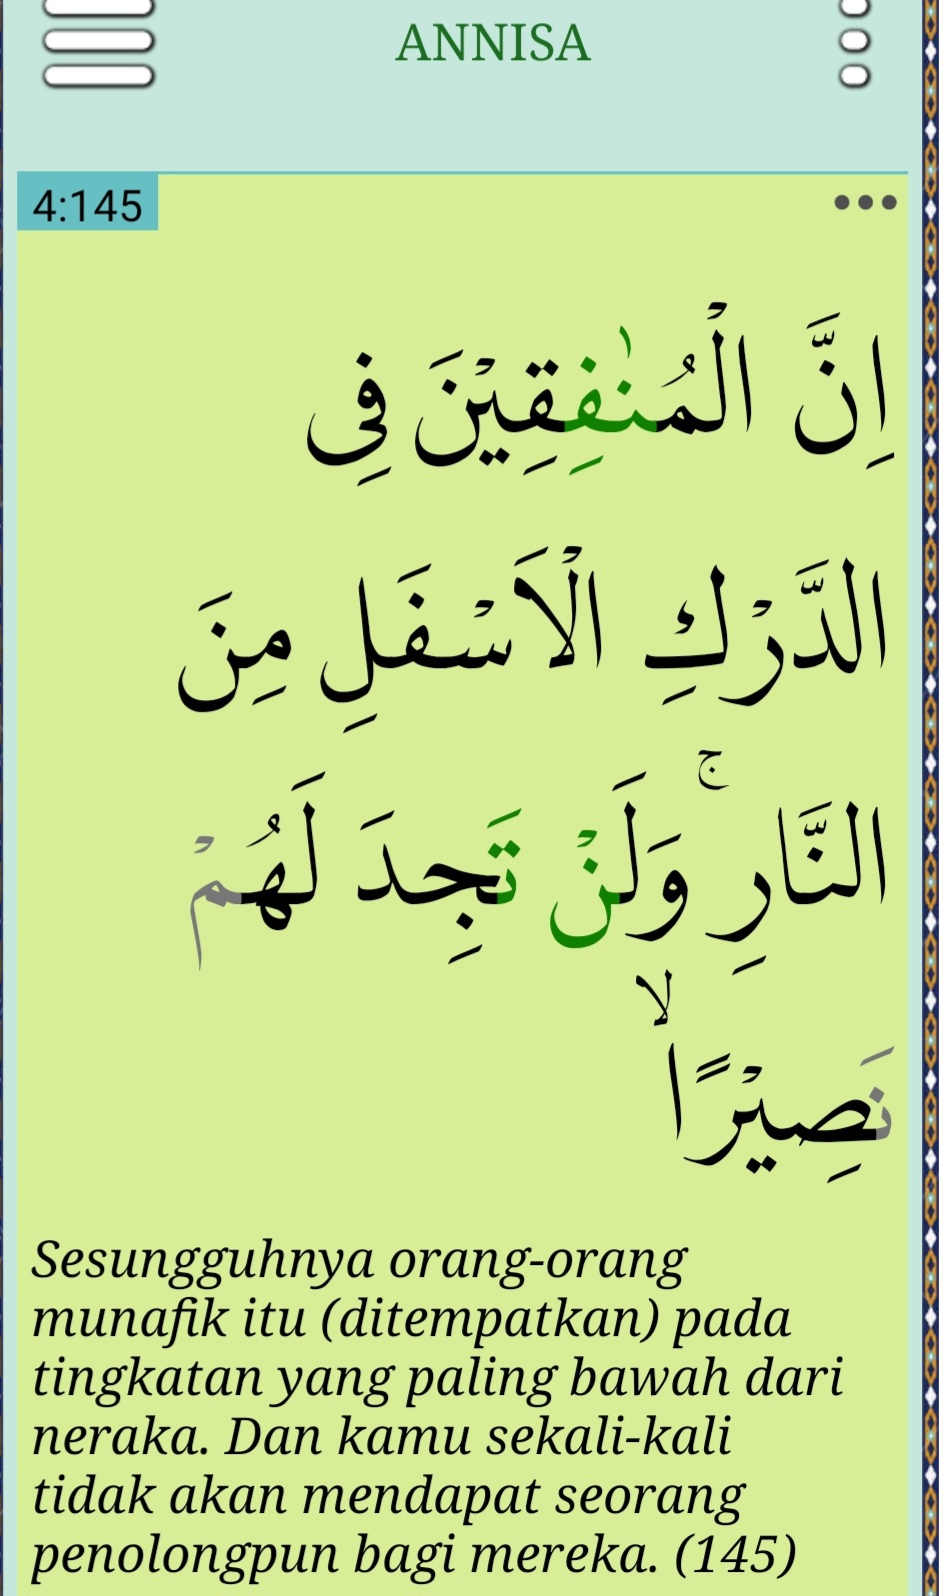 ANNISA
4:145
اِنَّ الْمُنٰفِقِيْنَ فِى
الدَّرْكِ الْاَسْفَلِ مِنَ
النَّارِۚ وَلَنْ تَجِدَ لَهُمْ
نَصِيْرًاۙ
Sesungguhnya orang-orang
munafik itu (ditempatkan) pada
tingkatan yang paling bawah dari
neraka. Dan kamu sekali-kali
tidak akan mendapat seorang
penolongpun bagi mereka. (145)